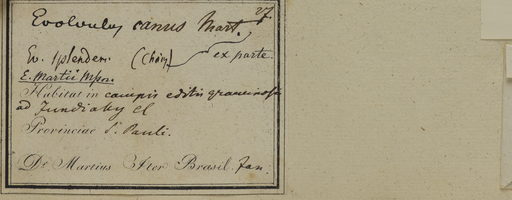 27.
Evolvulus canus Mart.
Ev. splenden. (Choisy) ex parte.
E. Martii Mpn.
Habitat in campis editis graminosis
ad Jundiahy el
Provinciae S. Pauli.
Dr Martius Iter Brasil. Jan.